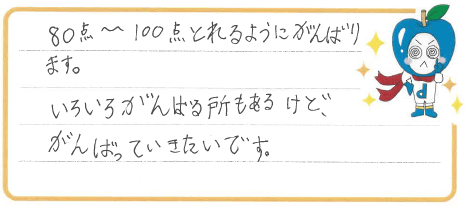 80点〜100点とれるようにがんばり
ます。
いろいろがんばる所もあるけど、
がんばっていきたいです。
d